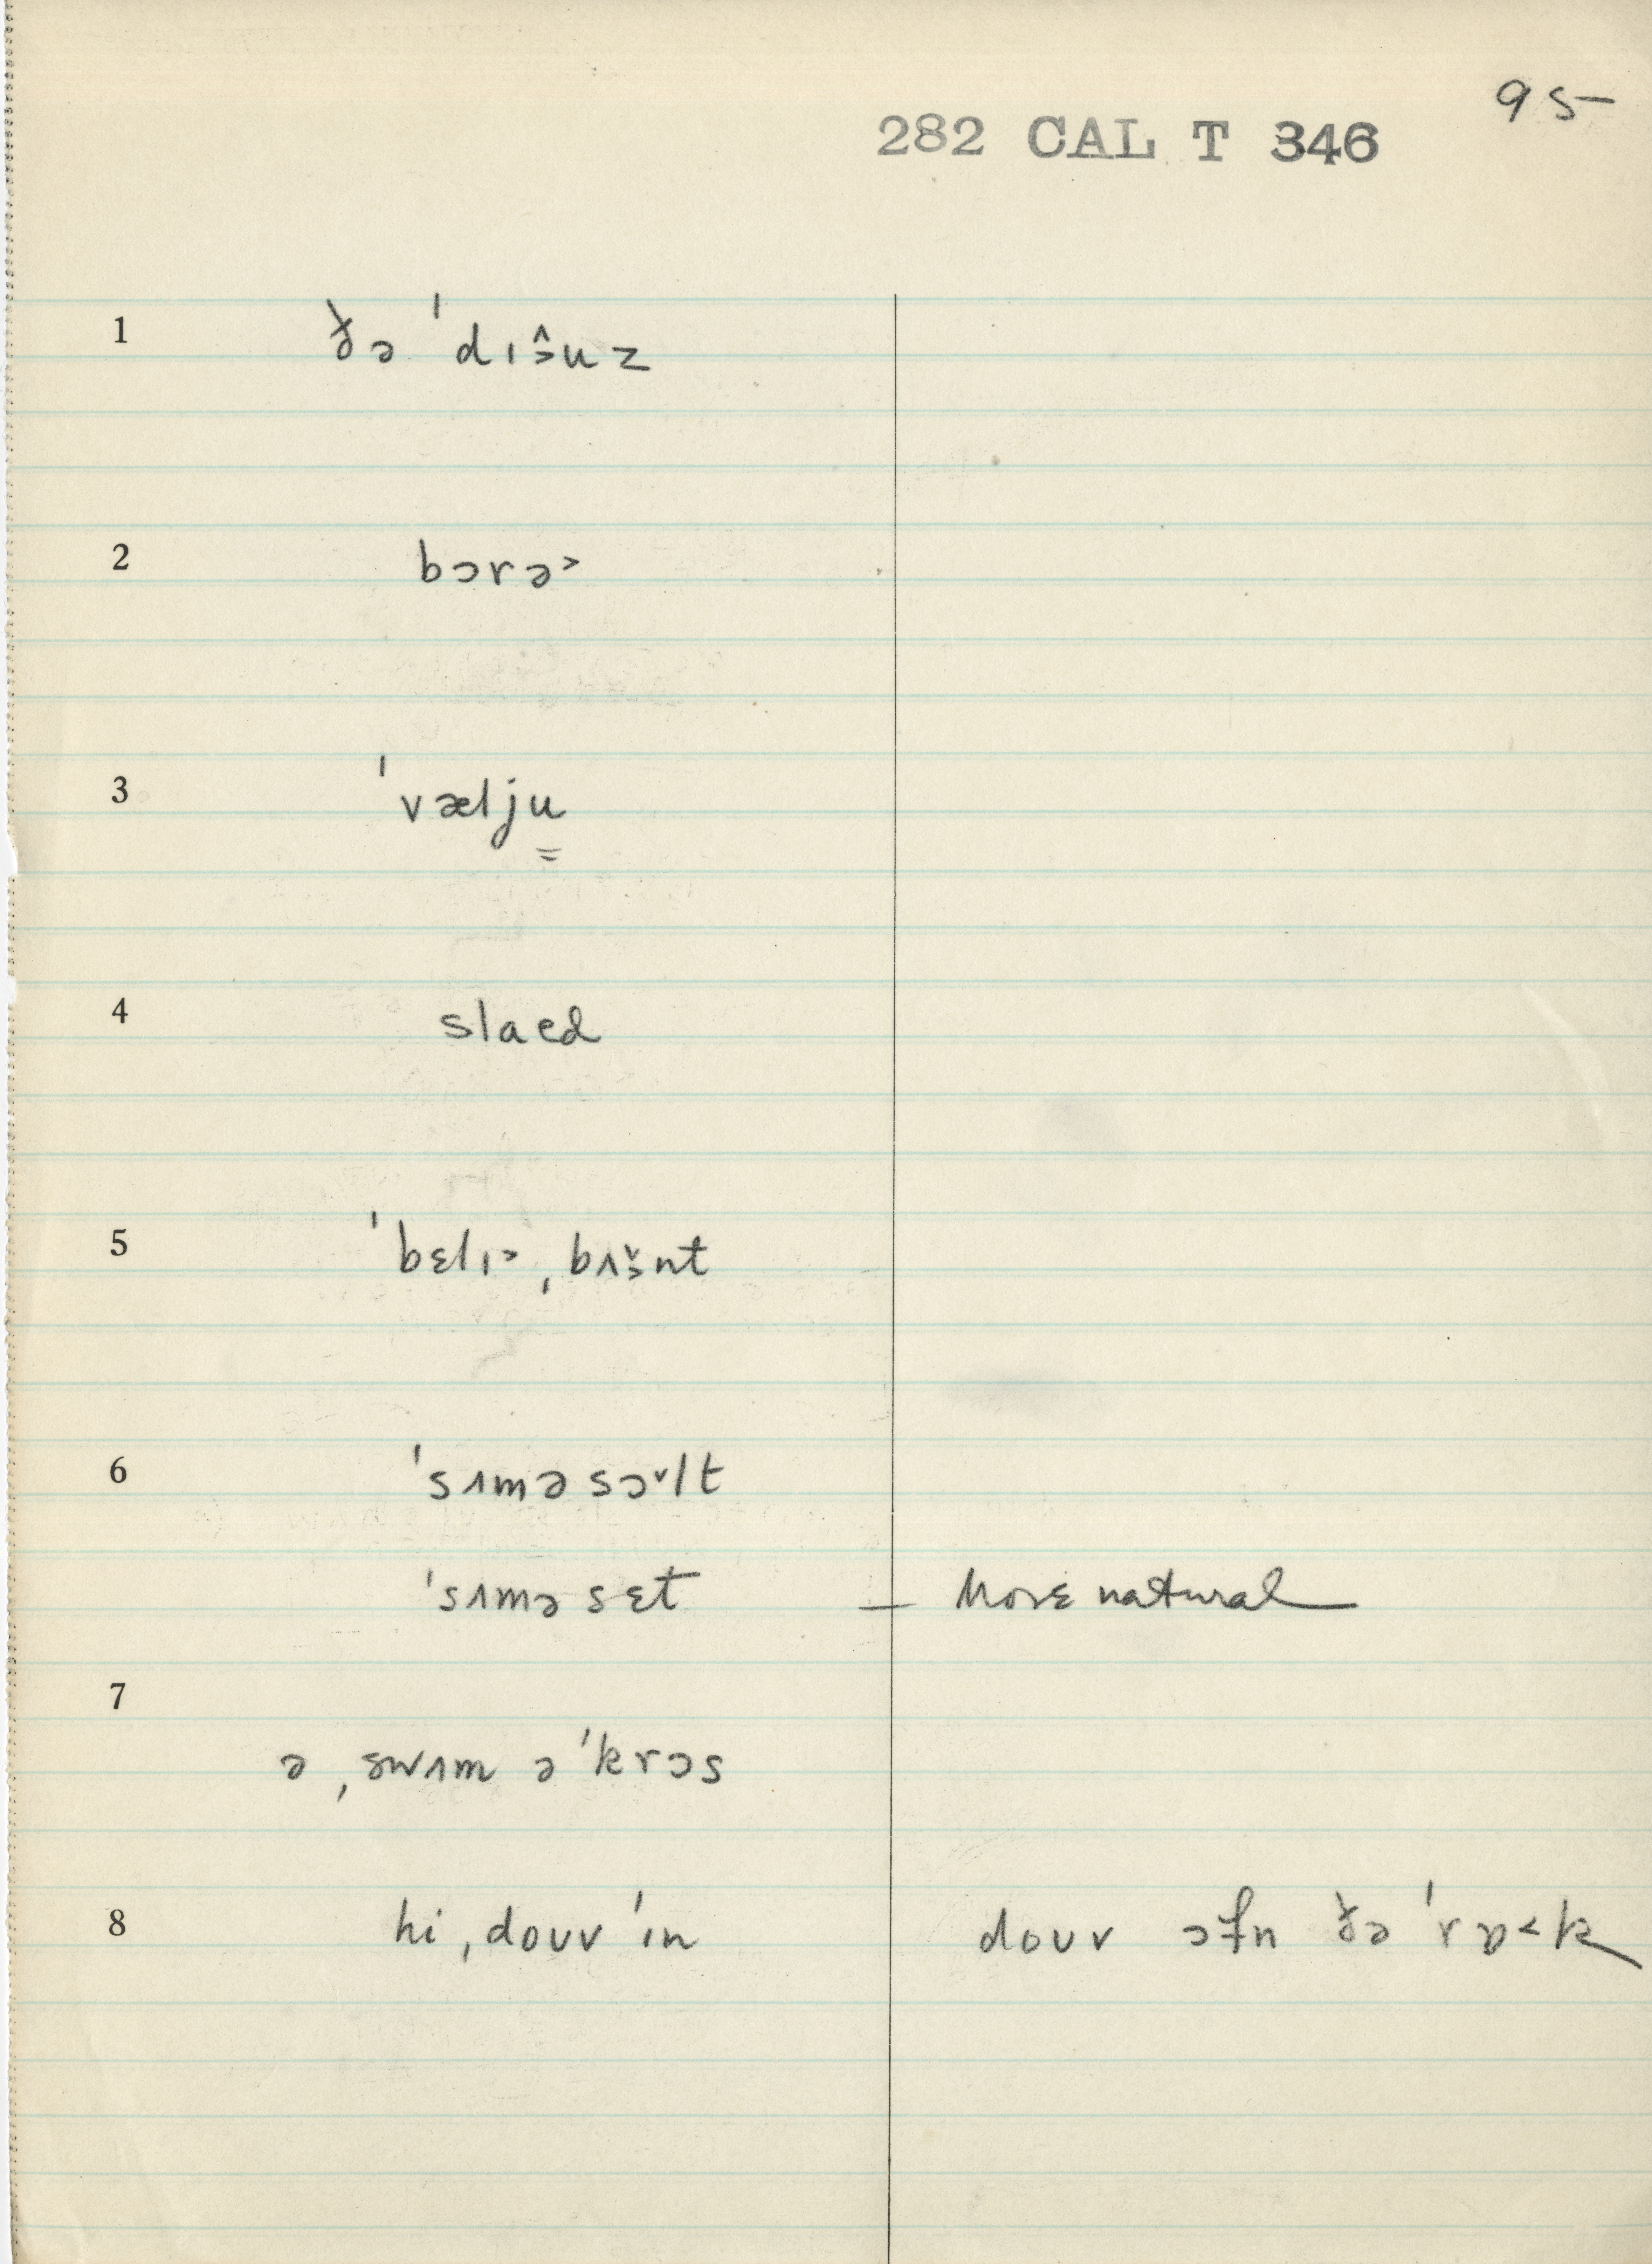 95-
282 CAL T 346
1 ðə ˈdɪɜ̂uz
2 bɔrə˃
3 ˈvælju̳
4 slaed
5 ˈbɛlɪə ˌbʌɜ̌nt
6 ˈsʌməsɔ˅lt
ˈsʌməsɛt — More natural
7
ə ˌswɪm əˈkrɔs
8 hi ˌdouvˈɪn douv ɔfn ðə ˈrɒ˂k